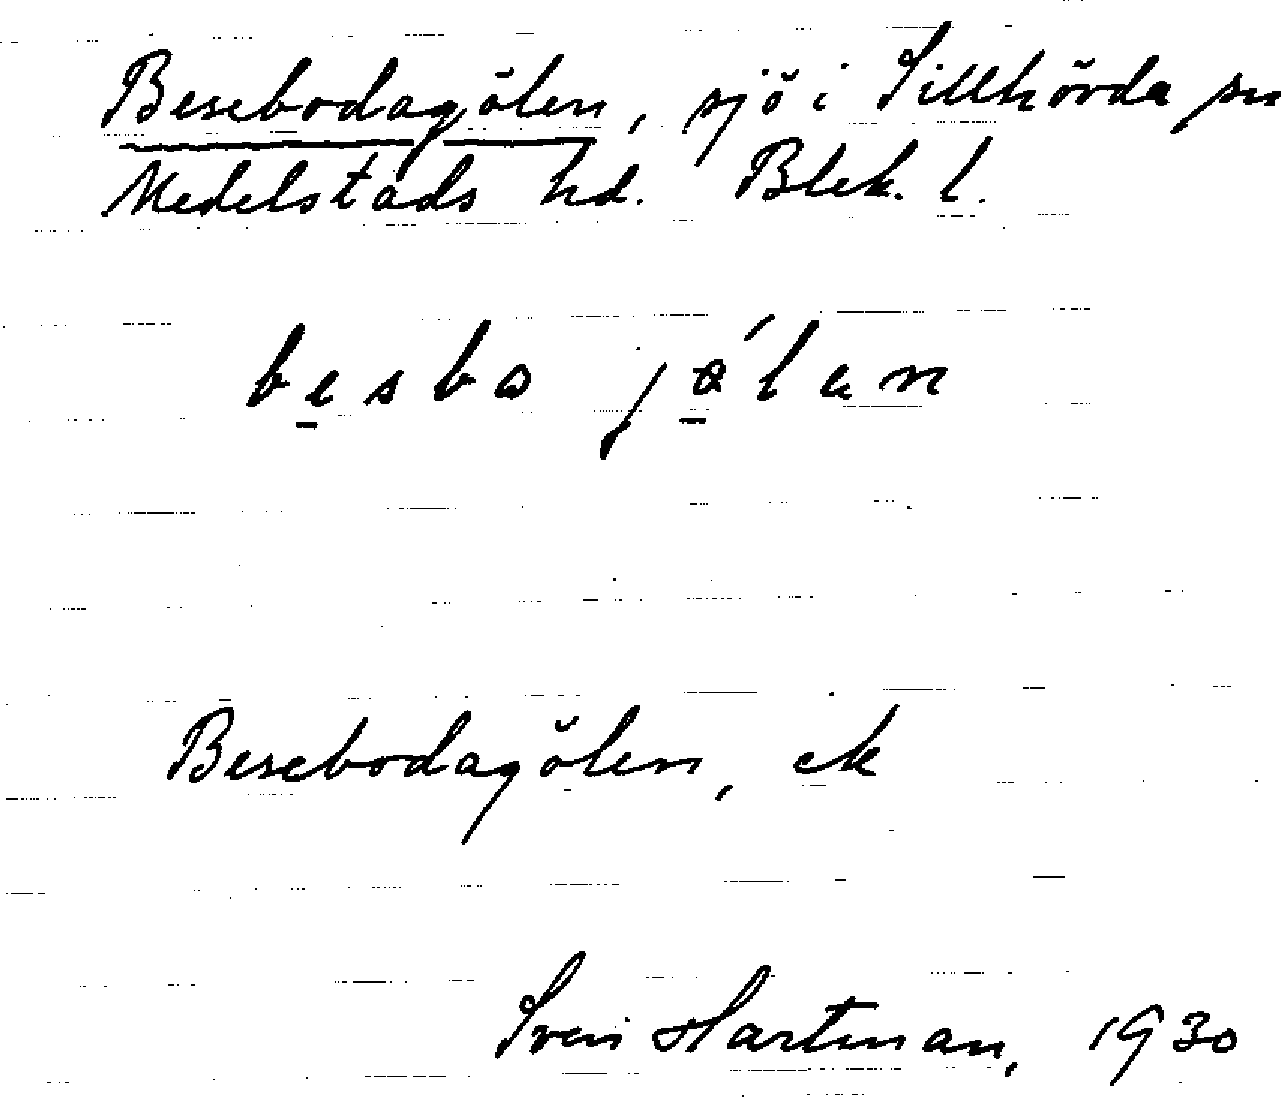 Besebodagölen, sjö i Sillhövda sn
Medelstads hd. Blek. l.
be̱sbo jø̱´lan
Besebodagölen, ek
Sven Hartman, 1930